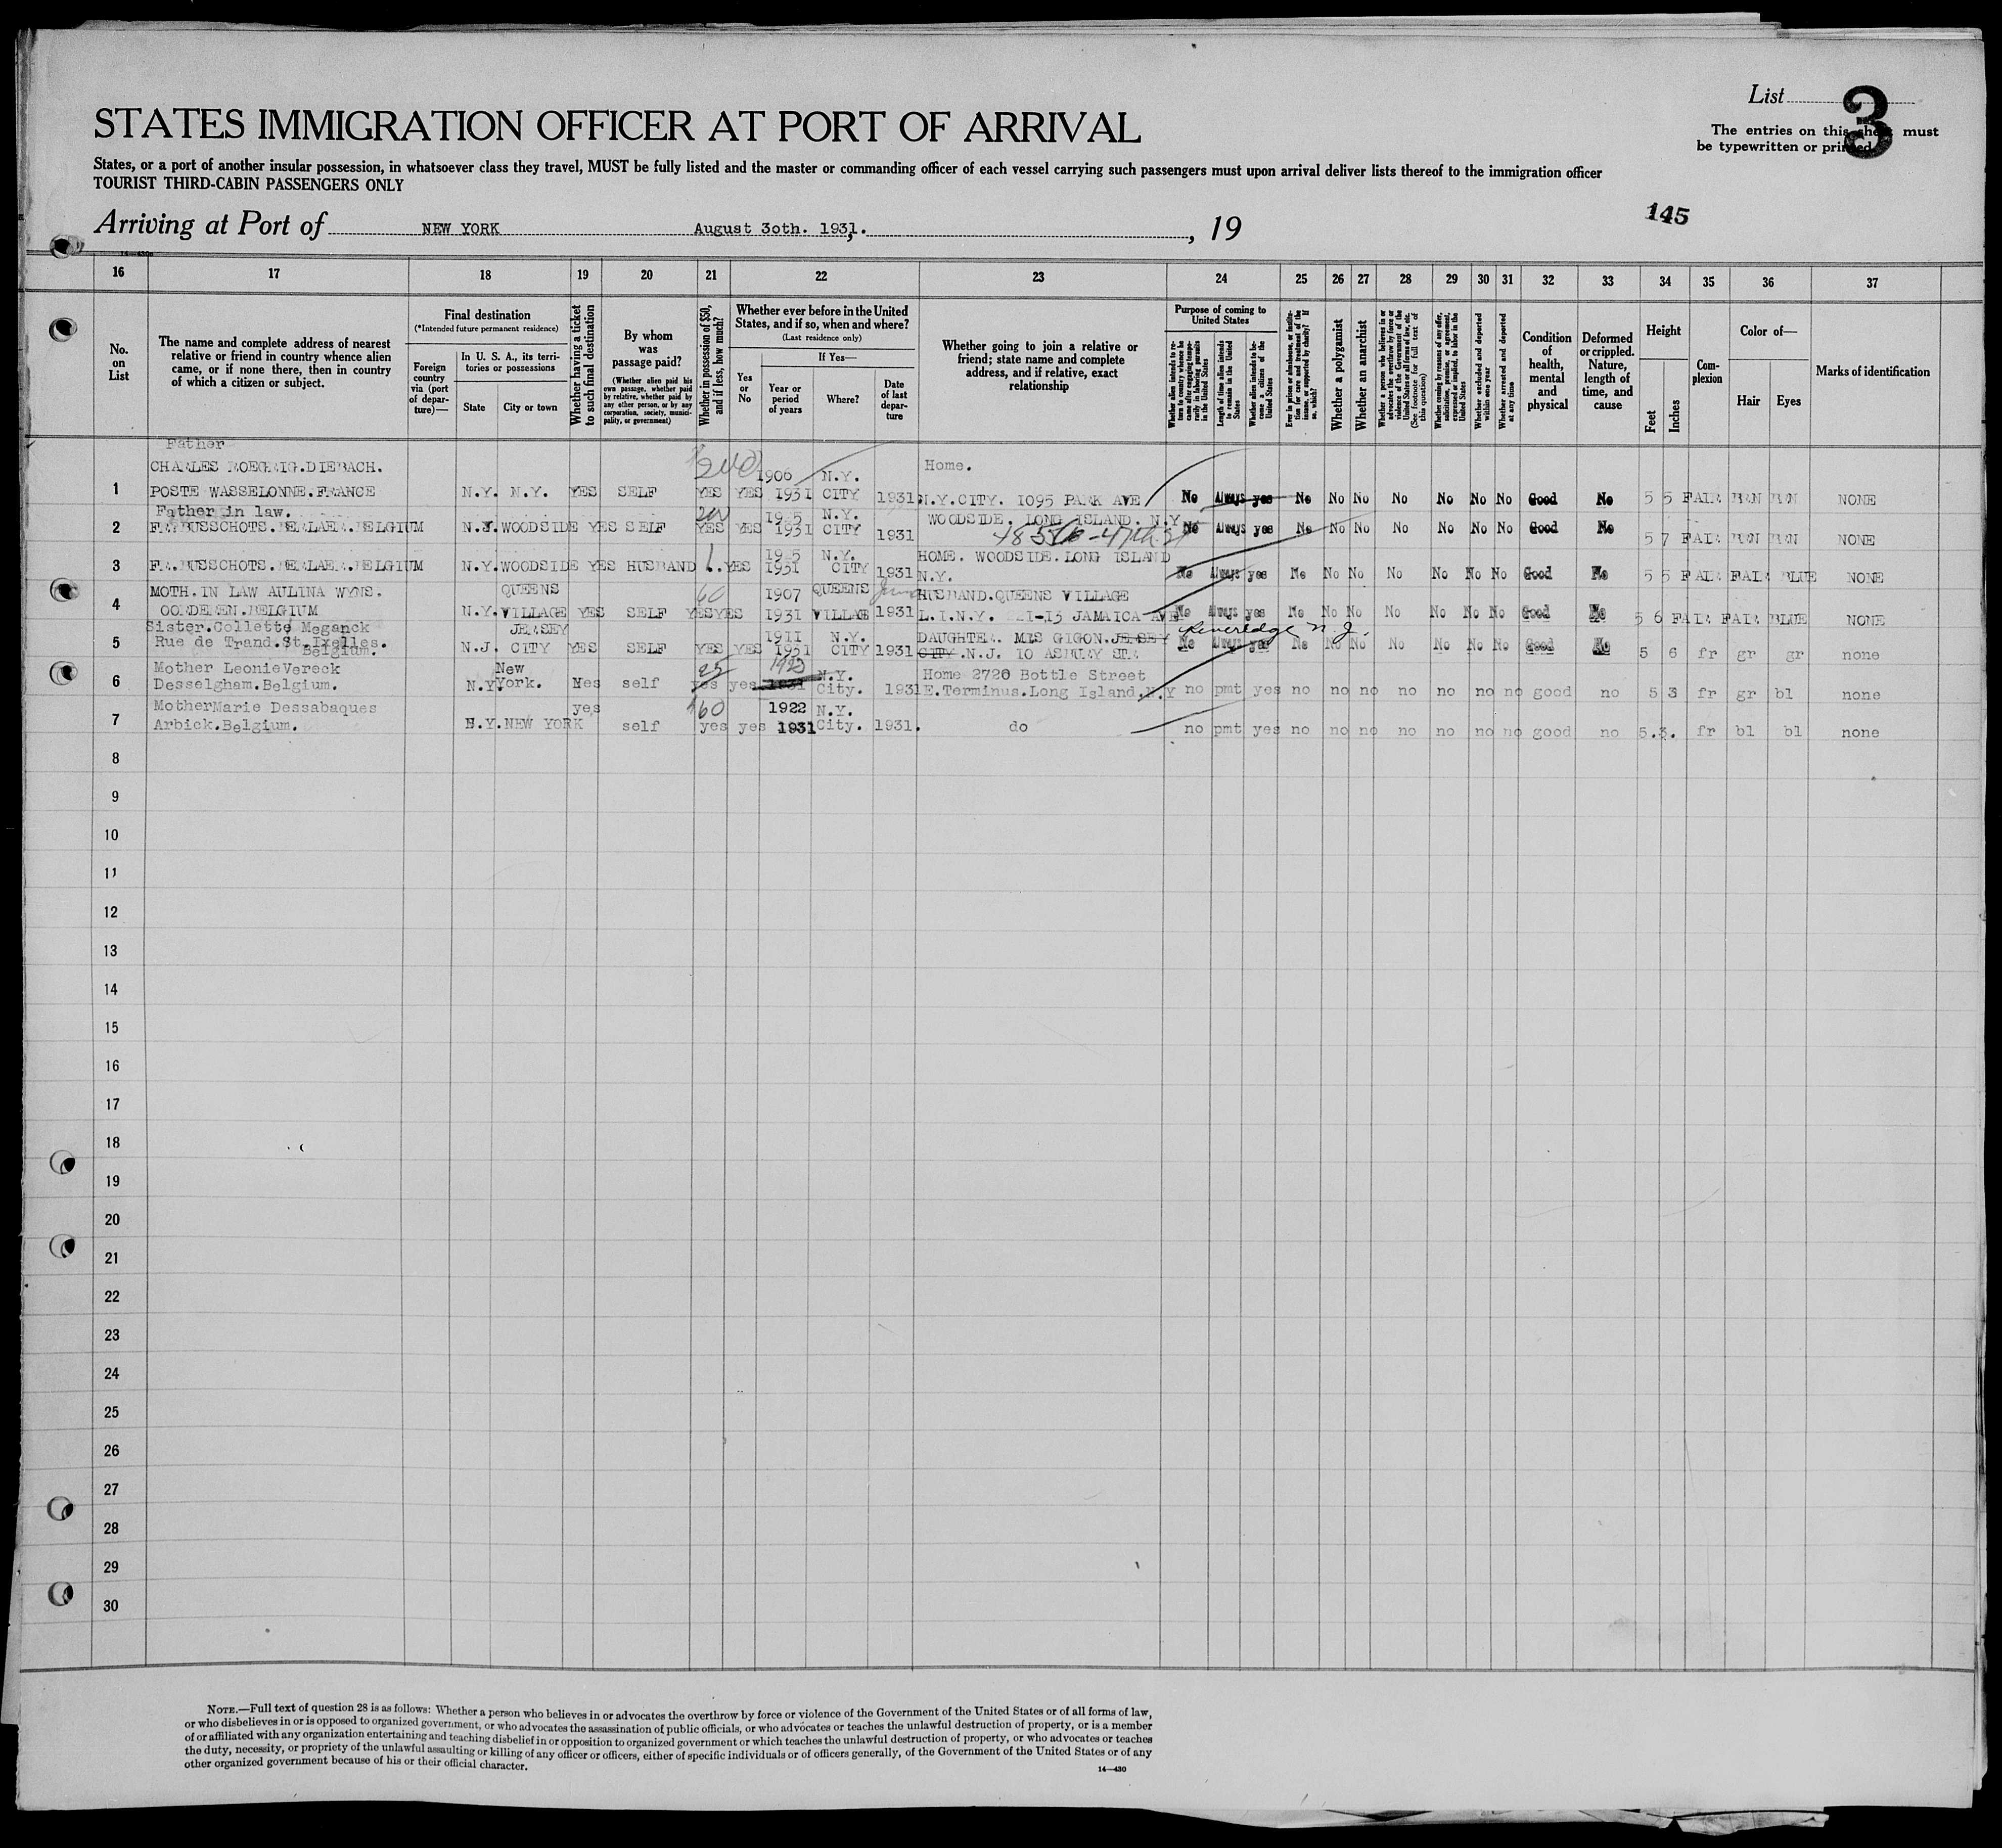 List 3
STATES IMMIGRATION OFFICER AT PORT OF ARRIVAL
The entries on this sheet must
be typewritten or printed
States, or a port of another insular possession, in whatsoever class they travel, MUST be fully listed and the master or commanding officer of each vessel carrying such passengers must upon arrival deliver lists thereof to the immigration officer
TOURIST THIRD-CABIN PASSENGERS ONLY
145
Arriving at Port of NEW YORK August 3oth. 1931. , 19
16 17 18 19 20 21 22 23 24 25 26 27 28 29 30 31 32 33 34 35 36 37
No. on List
The name and complete address of nearest
relative or friend in country whence alien
came, or if none there, then in country
of which a citizen or subject.
Final destination
(*Intended future permanent residence)
Foreign country via (port of departure)—
In U. S. A., its territories or possessions
State
City or town
Whether having a ticket to such final destination
By whom was passage paid?
(Whether alien paid his own passage, whether paid by relative, whether paid by any other person, or by any corporation, society, municipality, or government)
Whether in possession of $50, and if less, how much?
Whether ever before in the United
States, and if so, when and where?
(Last residence only)
Yes or No
If Yes—
Year or period of years
Where?
Date of last departure
Whether going to join a relative or
friend; state name and complete
address, and if relative, exact
relationship
Purpose of coming to United States
Whether alien intends to return to country whence he came after engaging temporarily in laboring pursuits in the United States
Length of time alien intends to remain in the United States
Whether alien intends to become a citizen of the United States
Ever in prison or almshouse, or institution for care and treatment of the insane, or supported by charity? If so, which?
Whether a polygamist
Whether an anarchist
Whether a person who believes in or advocates the overthrow by force or violence of the Government of the United States or all forms of law, etc. (See footnote for full text of this question)
Whether coming by reasons of any offer, solicitation, promise, or agreement, expressed or implied, to labor in the United States
Whether excluded and deported within one year
Whether arrested and deported at any time
Condition of health, mental and physical
Deformed or crippled. Nature, length of time, and cause
Height
Feet
Inches
Complexion
Color of—
Hair
Eyes
Marks of identification
Father
CHARLES ROEGRIG.DIEBACH. 240 1906 N.Y. Home.
1 POSTE WASSELONNE.FRANCE N.Y. N.Y. YES SELF YES YES 1931 CITY 1931 N.Y.CITY. 1095 PARK AVE No Always yes No No No No No No No Good No 5 5 FAIR BRN BRN NONE
Father in law. 200 1925 N.Y. WOODSIDE. LONG ISLAND. N.Y
2 BELGIUM N.Y. WOODSIDE YES SELF YES YES 1931 CITY 1931 No Always yes No No No No No No No Good No 5 7 FAIR BRN BRN NONE
1925 N.Y. HOME. WOODSIDE.LONG ISLAND
3 BELGIUM N.Y. WOODSIDE YES HUSBAND YES 1931 CITY 1931 N.Y. No Always yes No No No No No No No Good No 5 5 FAIR FAIR BLUE NONE
MOTH.IN LAW AULINA WYNS. QUEENS 60 1907 QUEENS HUSBAND.QUEENS VILLAGE
4 BELGIUM N.Y. VILLAGE YES SELF YES YES 1931 VILLAGE 1931 L.I.N.Y. JAMAICA AVE No Always yes No No No No No No No Good No 5 6 FAIR FAIR BLUE NONE
Sister.Collette Meganck JERSEY 1911 N.Y. DAUGHTER. MRS GIGON.JERSEY N.J.
5 Rue de Trand.St.Ixelles. N.J. CITY YES SELF YES YES 1931 CITY 1931 CITY.N.J. 10 ASBURY STR No Always yes No No No No No No No Good No 5 6 fr gr gr none
Belgium.
Mother LeonieVereck New 25 1923 N.Y. Home 2720 Bottle Street
6 Desselgham.Belgium. N.Y. York. Yes self yes yes 1931 City. 1931 E.Terminus.Long Island.N.Y no pmt yes no no no no no no no good no 5 3 fr gr bl none
MotherMarie Dessabaques yes 60 1922 N.Y.
7 Arbick.Belgium. N.Y. NEW YORK self yes yes 1931 City. 1931. do no pmt yes no no no no no no no good no 5.3. fr bl bl none
8
9
10
11
12
13
14
15
16
17
18
19
20
21
22
23
24
25
26
27
28
29
30
NOTE.—Full text of question 28 is as follows: Whether a person who believes in or advocates the overthrow by force or violence of the Government of the United States or of all forms of law,
or who disbelieves in or is opposed to organized government, or who advocates the assassination of public officials, or who advocates or teaches the unlawful destruction of property, or is a member
of or affiliated with any organization entertaining and teaching disbelief in or opposition to organized government or which teaches the unlawful destruction of property, or who advocates or teaches
the duty, necessity, or propriety of the unlawful assaulting or killing of any officer or officers, either of specific individuals or of officers generally, of the Government of the United States or of any
other organized government because of his or their official character.
14—430